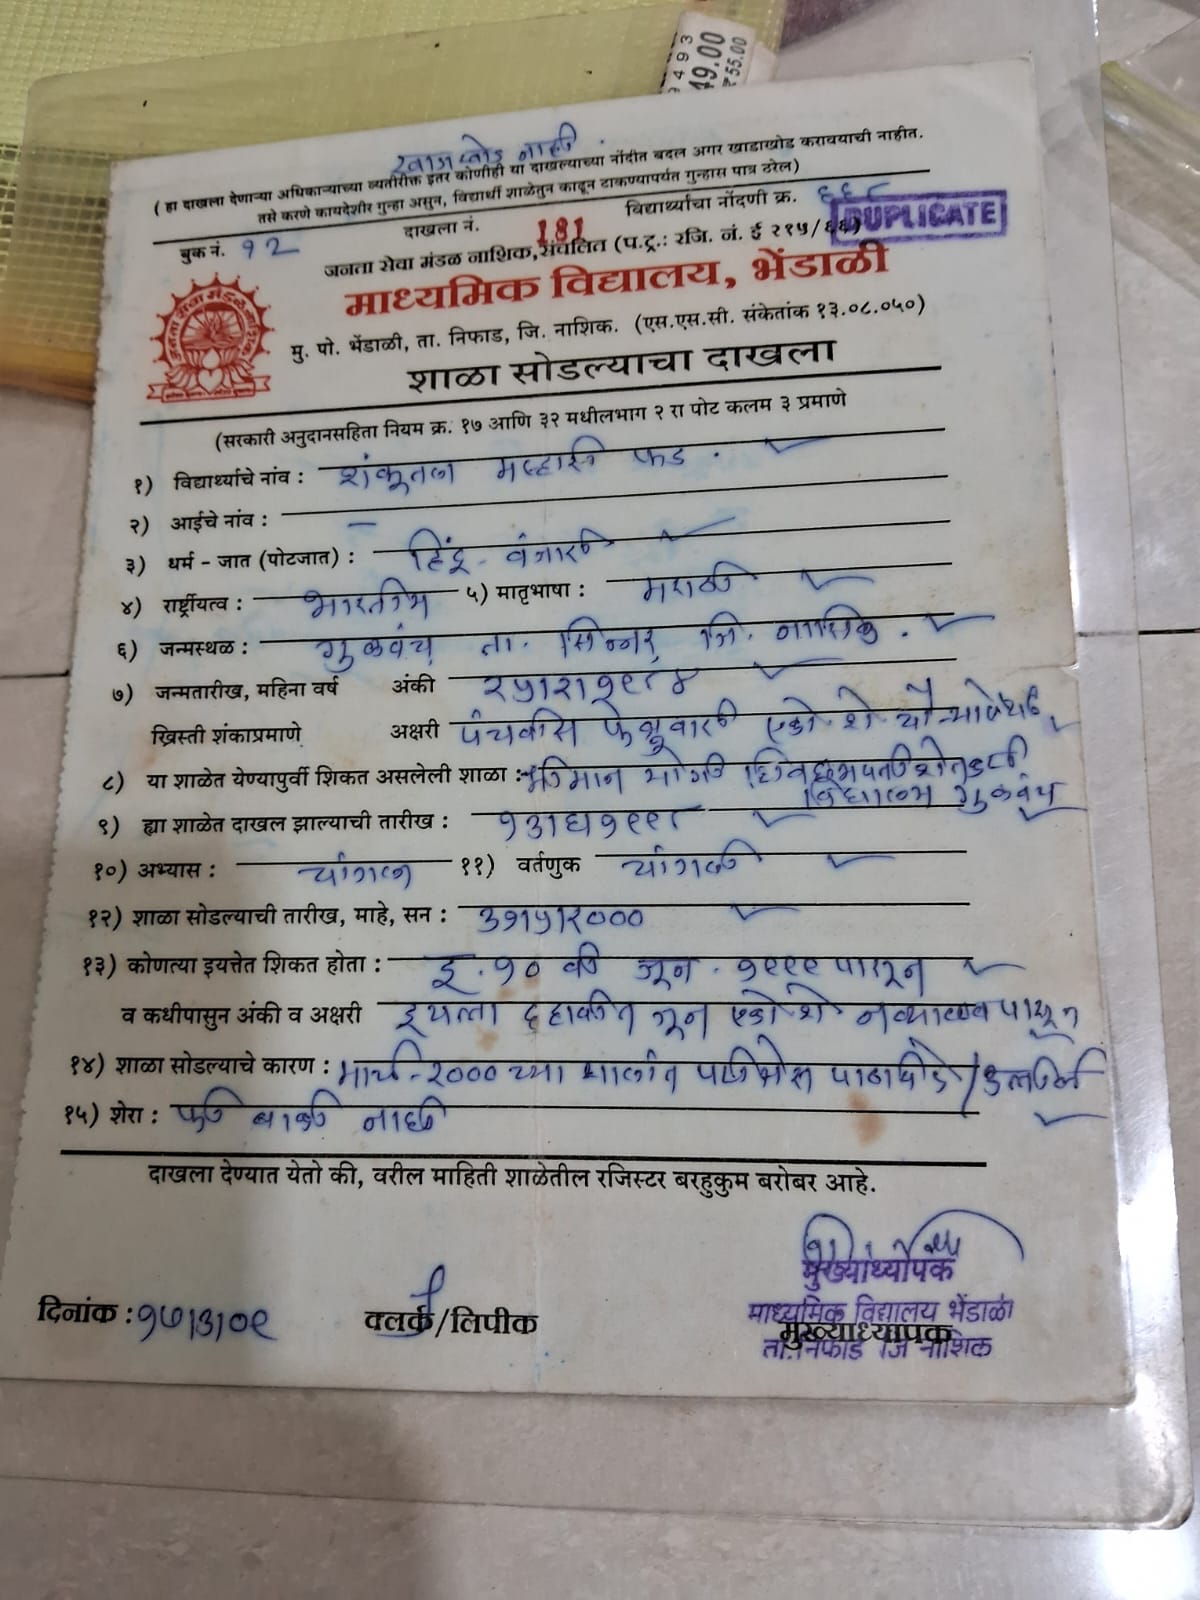 9493
49.00
₹55.00
खाडाखोड नाही
( हा दाखला देणाऱ्या अधिकाऱ्याच्या व्यतीरीक्त इतर कोणीही या दाखल्याच्या नोंदीत बदल अगर खाडाखोड करावयाची नाहीत.
तसे करणे कायदेशीर गुन्हा असुन, विद्यार्थी शाळेतुन काढून टाकण्यापर्यंत गुन्हास पात्र ठरेल)
बुक नं. १२ दाखला नं. 181 विद्यार्थ्याचा नोंदणी क्र. ६६८
DUPLICATE
जनता सेवा मंडळ नाशिक, संचलित (प.ट्र.: रजि. नं. ई २१५/६६)
माध्यमिक विद्यालय, भेंडाळी
मु. पो. भेंडाळी, ता. निफाड, जि. नाशिक. (एस.एस.सी. संकेतांक १३.०८.०५०)
शाळा सोडल्याचा दाखला
(सरकारी अनुदानसहिता नियम क्र. १७ आणि ३२ मधीलभाग २ रा पोट कलम ३ प्रमाणे
१) विद्यार्थ्याचे नांव : शंकूतला मल्हारी फड .
२) आईचे नांव : —
३) धर्म - जात (पोटजात) : हिंदू - वंजारी
४) रार्ष्ट्रीयत्व : भारतीय ५) मातृभाषा : मराठी
६) जन्मस्थळ : गुळवंच ता. सिन्नर जि. नाशिक .
७) जन्मतारीख, महिना वर्ष अंकी २५।२।१९८४
ख्रिस्ती शंकाप्रमाणे अक्षरी पंचवीस फेब्रुवारी एकोणीशे चौऱ्याऐंशी
८) या शाळेत येण्यापुर्वी शिकत असलेली शाळा : श्रीमान योगी शिवछत्रपती शेतकरी
विद्यालय गुळवंच
९) ह्या शाळेत दाखल झाल्याची तारीख : १३।६।१९९८
१०) अभ्यास : चांगला ११) वर्तणुक चांगली
१२) शाळा सोडल्याची तारीख, माहे, सन : ३१।५।२०००
१३) कोणत्या इयत्तेत शिकत होता : इ. १० वी जून - १९९९ पासून
व कधीपासुन अंकी व अक्षरी इयत्ता दहावीत जून एकोणीशे नव्याण्णव पासून
१४) शाळा सोडल्याचे कारण : मार्च - २००० च्या शालांत परीक्षेस पाठविले / उत्तीर्ण
१५) शेरा : फी बाकी नाही
दाखला देण्यात येतो की, वरील माहिती शाळेतील रजिस्टर बरहुकुम बरोबर आहे.
दिनांक : १७।३।०९ क्लर्क/लिपीक मुख्याध्यापक
मुख्याध्यापक
माध्यमिक विद्यालय भेंडाळी
ता. निफाड जि नाशिक